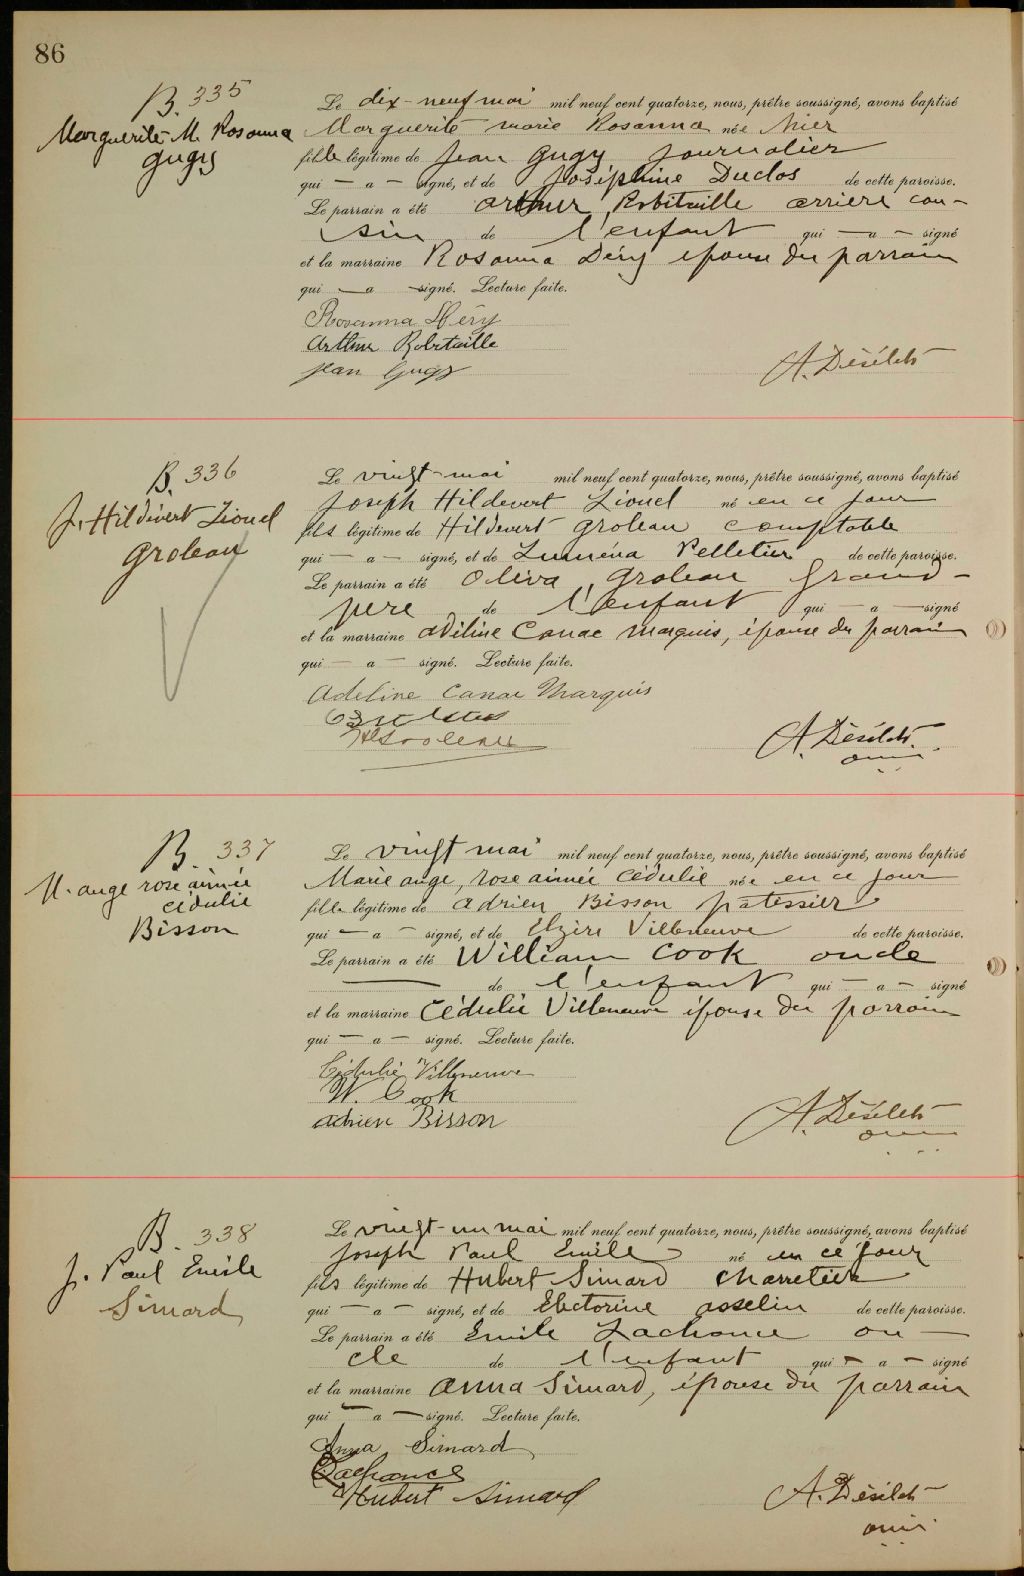 86
B. 335
Marguerite M. Rosanna
Gugy
Le dix-neuf mai mil neuf cent quatorze, nous, prêtre soussigné, avons baptisé
Marguerite Marie Rosanna née hier
fille légitime de Jean Gugy journalier
qui — a — signé, et de Joséphine Duclos de cette paroisse.
Le parrain a été Arthur Robitaille arrière cou-
sin de l'enfant qui — a — signé
et la marraine Rosanna Déry épouse du parrain
qui — a — signé. Lecture faite.
Rosanna Déry
Arthur Robitaille
Jean Gugy
A. Désilets
B. 336
J. Hildevert Lionel
Groleau
Le vingt-mai mil neuf cent quatorze, nous, prêtre soussigné, avons baptisé
Joseph Hildevert Lionel né en ce jour
fils légitime de Hildevert Groleau comptable
qui — a — signé, et de Luména Pelletier de cette paroisse.
Le parrain a été Oliva Groleau grand-
père de l'enfant qui — a — signé
et la marraine Adéline Canac Marquis, épouse du parrain
qui — a — signé. Lecture faite.
Adeline Canac Marquis
A. Désilets
omi
B. 337
M. ange rose aimée
Cédulie
Bisson
Le vingt mai mil neuf cent quatorze, nous, prêtre soussigné, avons baptisé
Marie ange, rose aimée Cédulie née en ce jour
fille légitime de Adrien Bisson pâtissier
qui — a — signé, et de Elzire Villeneuve de cette paroisse.
Le parrain a été William Cook oncle
— de l'enfant qui — a — signé
et la marraine Cédulie Villeneuve épouse du parrain
qui — a — signé. Lecture faite.
Cédulie Villeneuve
W. Cook
Adrien Bisson
A. Désilets
omi
B. 338
J. Paul Emile
Simard
Le vingt-un mai mil neuf cent quatorze, nous, prêtre soussigné, avons baptisé
Joseph Paul Emile né en ce jour
fils légitime de Hubert Simard charretier
qui — a — signé, et de Electorine Asselin de cette paroisse.
Le parrain a été Emile Lachance on-
cle de l'enfant qui — a — signé
et la marraine Anna Simard, épouse du parrain
qui — a — signé. Lecture faite.
Anna Simard
Hubert Simard
A. Désilets
omi